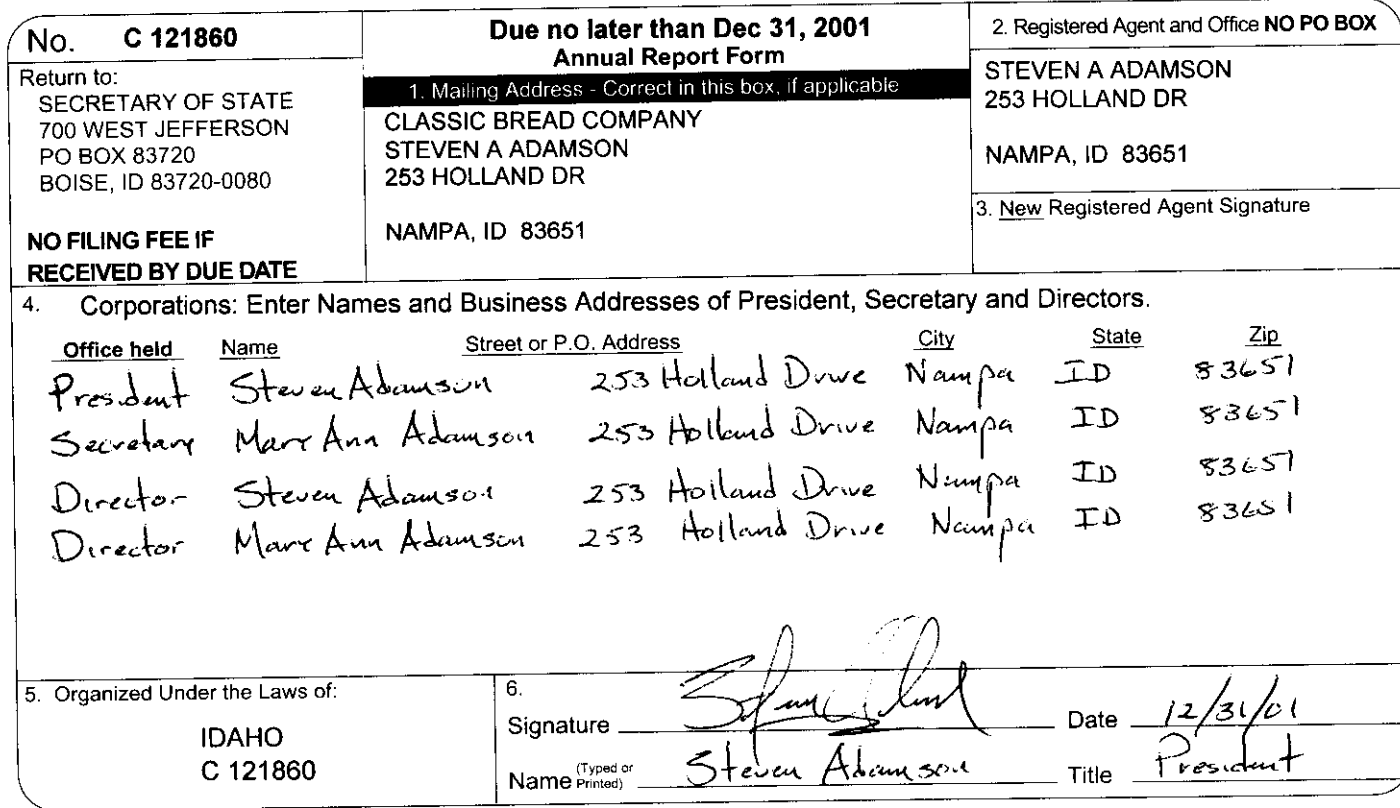 No. C 121860
Return to:
SECRETARY OF STATE
700 WEST JEFFERSON
PO BOX 83720
BOISE, ID 83720-0080
NO FILING FEE IF
RECEIVED BY DUE DATE
Due no later than Dec 31, 2001
Annual Report Form
1. Mailing Address - Correct in this box, if applicable
CLASSIC BREAD COMPANY
STEVEN A ADAMSON
253 HOLLAND DR
NAMPA, ID 83651
2. Registered Agent and Office NO PO BOX
STEVEN A ADAMSON
253 HOLLAND DR
NAMPA, ID 83651
3. New Registered Agent Signature
4. Corporations: Enter Names and Business Addresses of President, Secretary and Directors.
Office held Name Street or P.O. Address City State Zip
President Steven Adamson 253 Holland Drive Nampa ID 83651
Secretary Mary Ann Adamson 253 Holland Drive Nampa ID 83651
Director Steven Adamson 253 Holland Drive Nampa ID 83651
Director Mary Ann Adamson 253 Holland Drive Nampa ID 83651
5. Organized Under the Laws of:
IDAHO
C 121860
6.
Signature Date 12/31/01
Name (Typed or Printed) Steven Adamson Title President